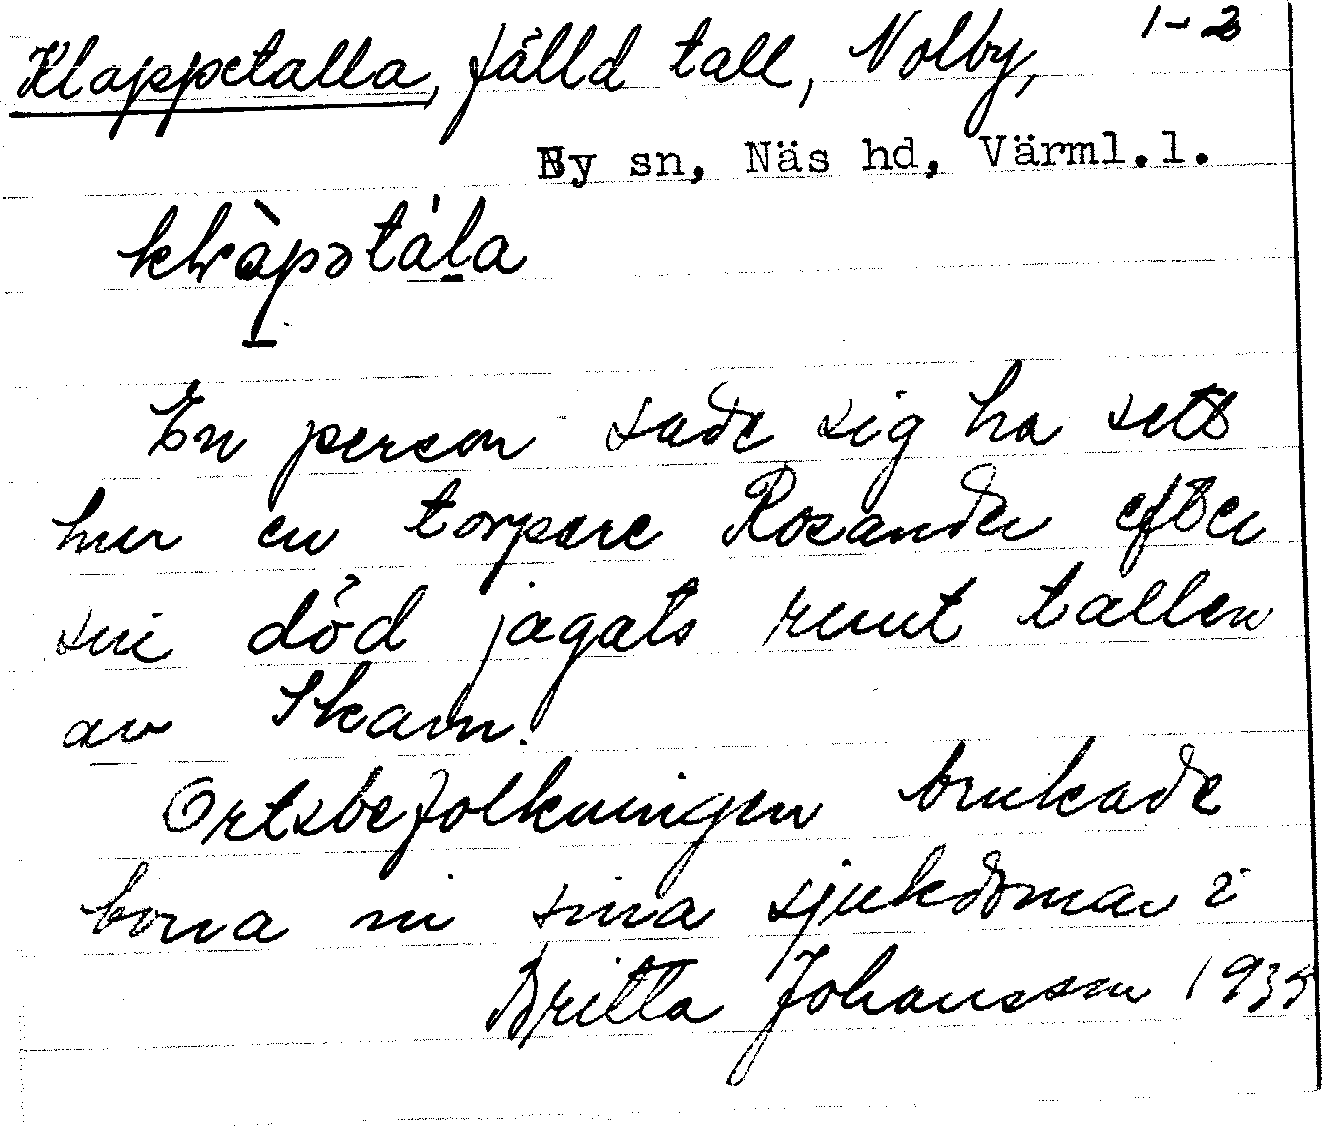 1-2
Klappetalla, fälld tall, Nolby,
By sn, Näs hd, Värml.l.
En person sade sig ha sett
hur en torpare Rosander efter
sin död jagats runt tallen
av Skam.
Ortsbefolkningen brukade
borra in sina sjukdomar i
Britta Johansson 1935